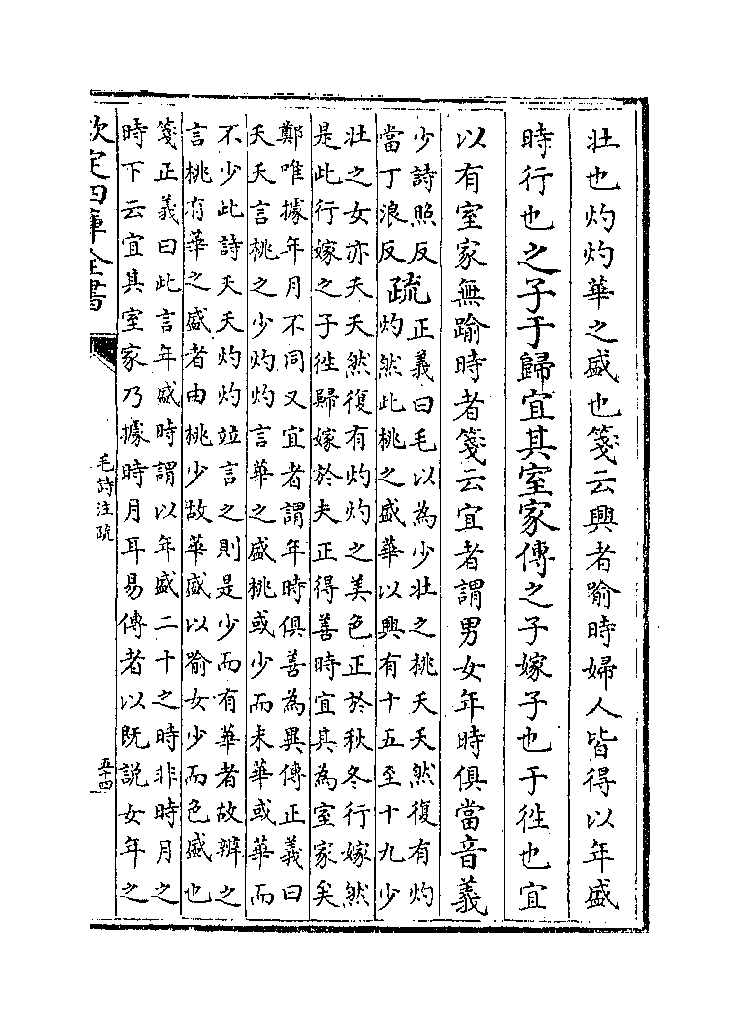 壯也灼灼華之盛也箋云興者喻時婦人皆得以年盛
時行也之子于歸宜其室家傳之子嫁子也于徃也宜
以有室家無踰時者箋云宜者謂男女年時俱當音義
少詩照反
當丁浪反
疏
正義曰毛以為少壯之桃夭夭然復有灼
灼然此桃之盛華以興有十五至十九少
壯之女亦夭夭然復有灼灼之美色正於秋冬行嫁然
是此行嫁之子徃歸嫁於夫正得善時宜其為室家矣
鄭唯據年月不同又宜者謂年時俱善為異傳正義曰
夭夭言桃之少灼灼言華之盛桃或少而未華或華而
不少此詩夭夭灼灼竝言之則是少而有華者故辨之
言桃有華之盛者由桃少故華盛以喻女少而色盛也
箋正義曰此言年盛時謂以年盛二十之時非時月之
時下云宜其室家乃據時月耳易傳者以既說女年之
欽定四庫全書
毛詩注疏
五十四